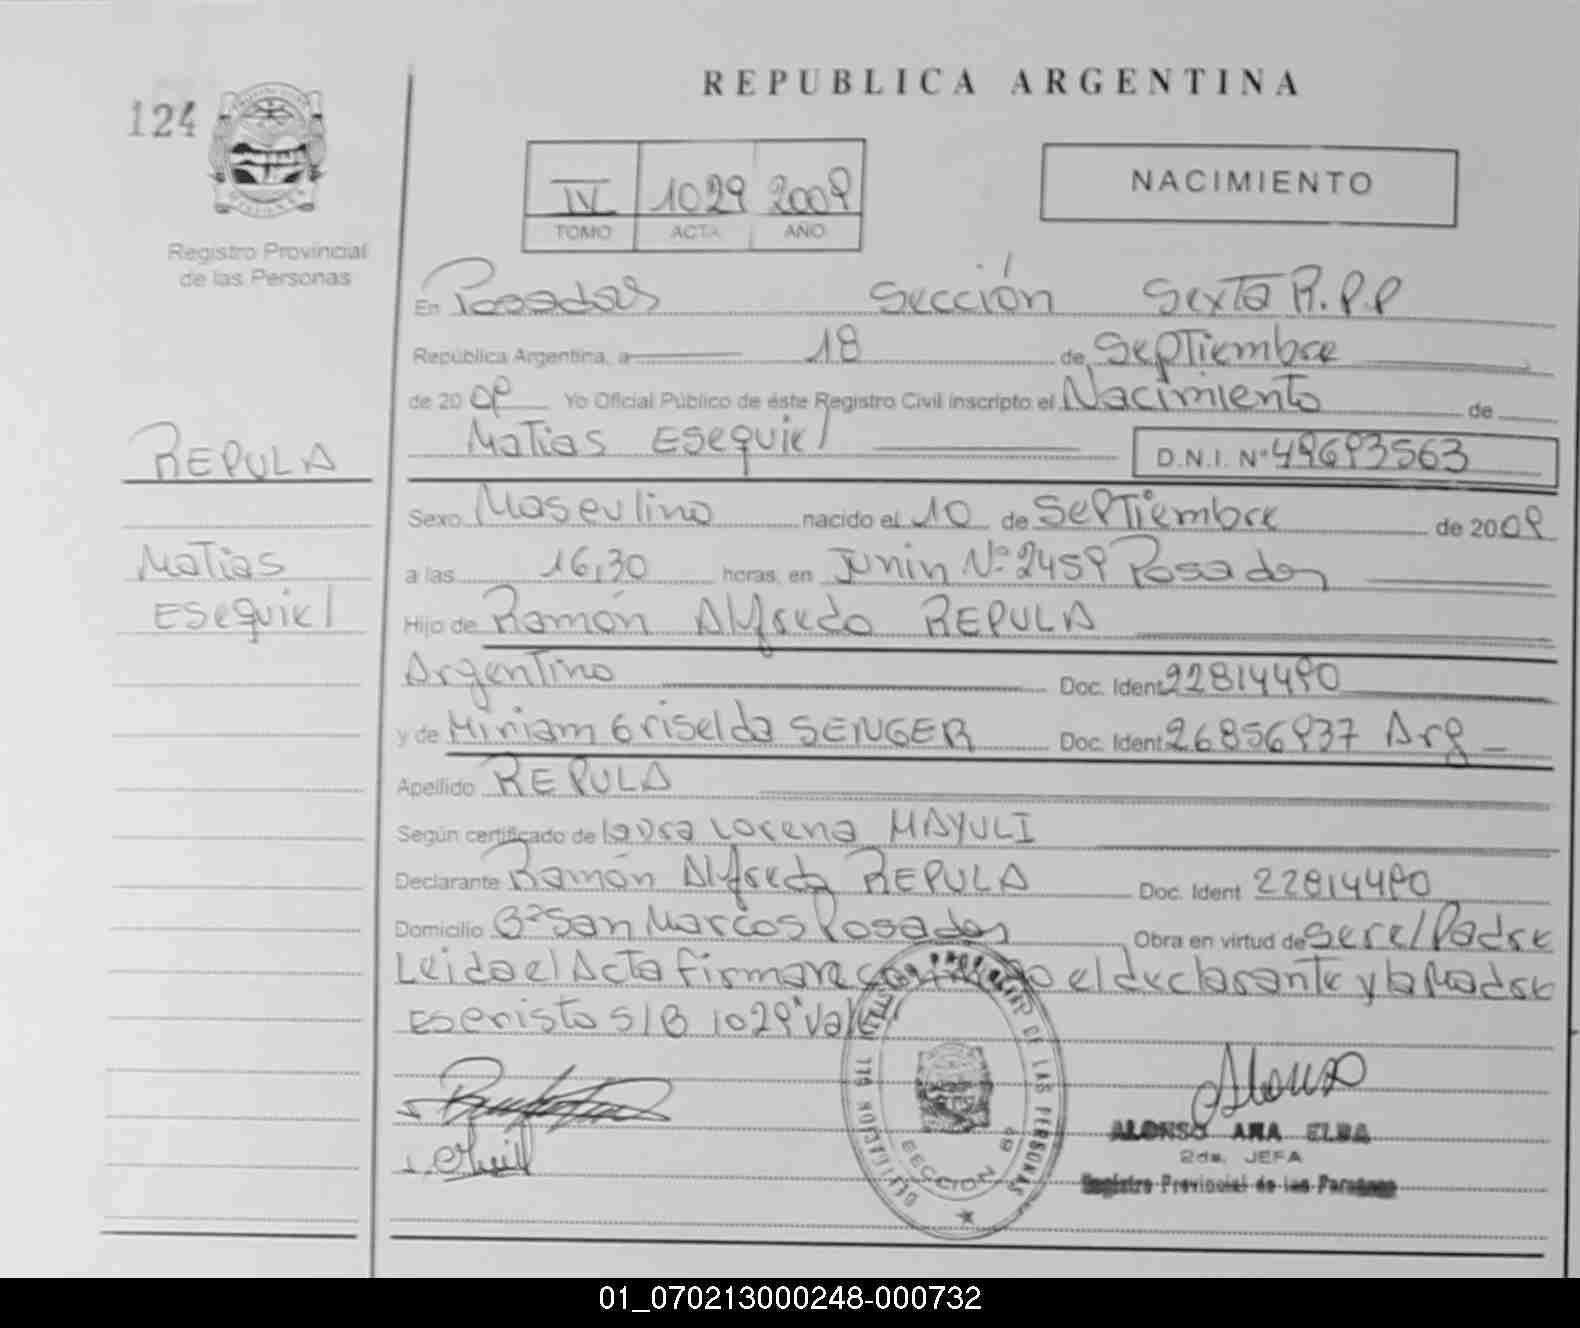 REPUBLICA ARGENTINA
124
IV 1029 2009
TOMO ACTA AÑO
NACIMIENTO
Registro Provincial
de las Personas
En Posadas Sección Sexta R.P.P
República Argentina, a 18 de Septiembre
de 2009 Yo Oficial Público de éste Registro Civil inscripto el Nacimiento de
Matias Esequiel D.N.I. Nº 49693563
REPULA
Sexo Masculino nacido el 10 de Septiembre de 2009
Matias
a las 16,30 horas, en Junin Nº 2459 Posadas
Esequiel
Hijo de Ramón Alfredo REPULA
Argentino Doc. Ident. 22814490
y de Miriam Griselda SENGER Doc. Ident. 26856937 Arg
Apellido REPULA
Según certificado de Laura Lorena MAYULI
Declarante Ramón Alfredo REPULA Doc. Ident. 22814490
Domicilio Bº San Marcos Posadas Obra en virtud de ser el Padre
Leida el Acta firman el declarante y la Madre
S/B 1029 Vale
REGISTRO PROVINCIAL DE LAS PERSONAS
SECCION 6ª
Alonso
ALONSO ANA ELBA
2da. JEFA
Registro Provincial de las Personas
01_070213000248-000732